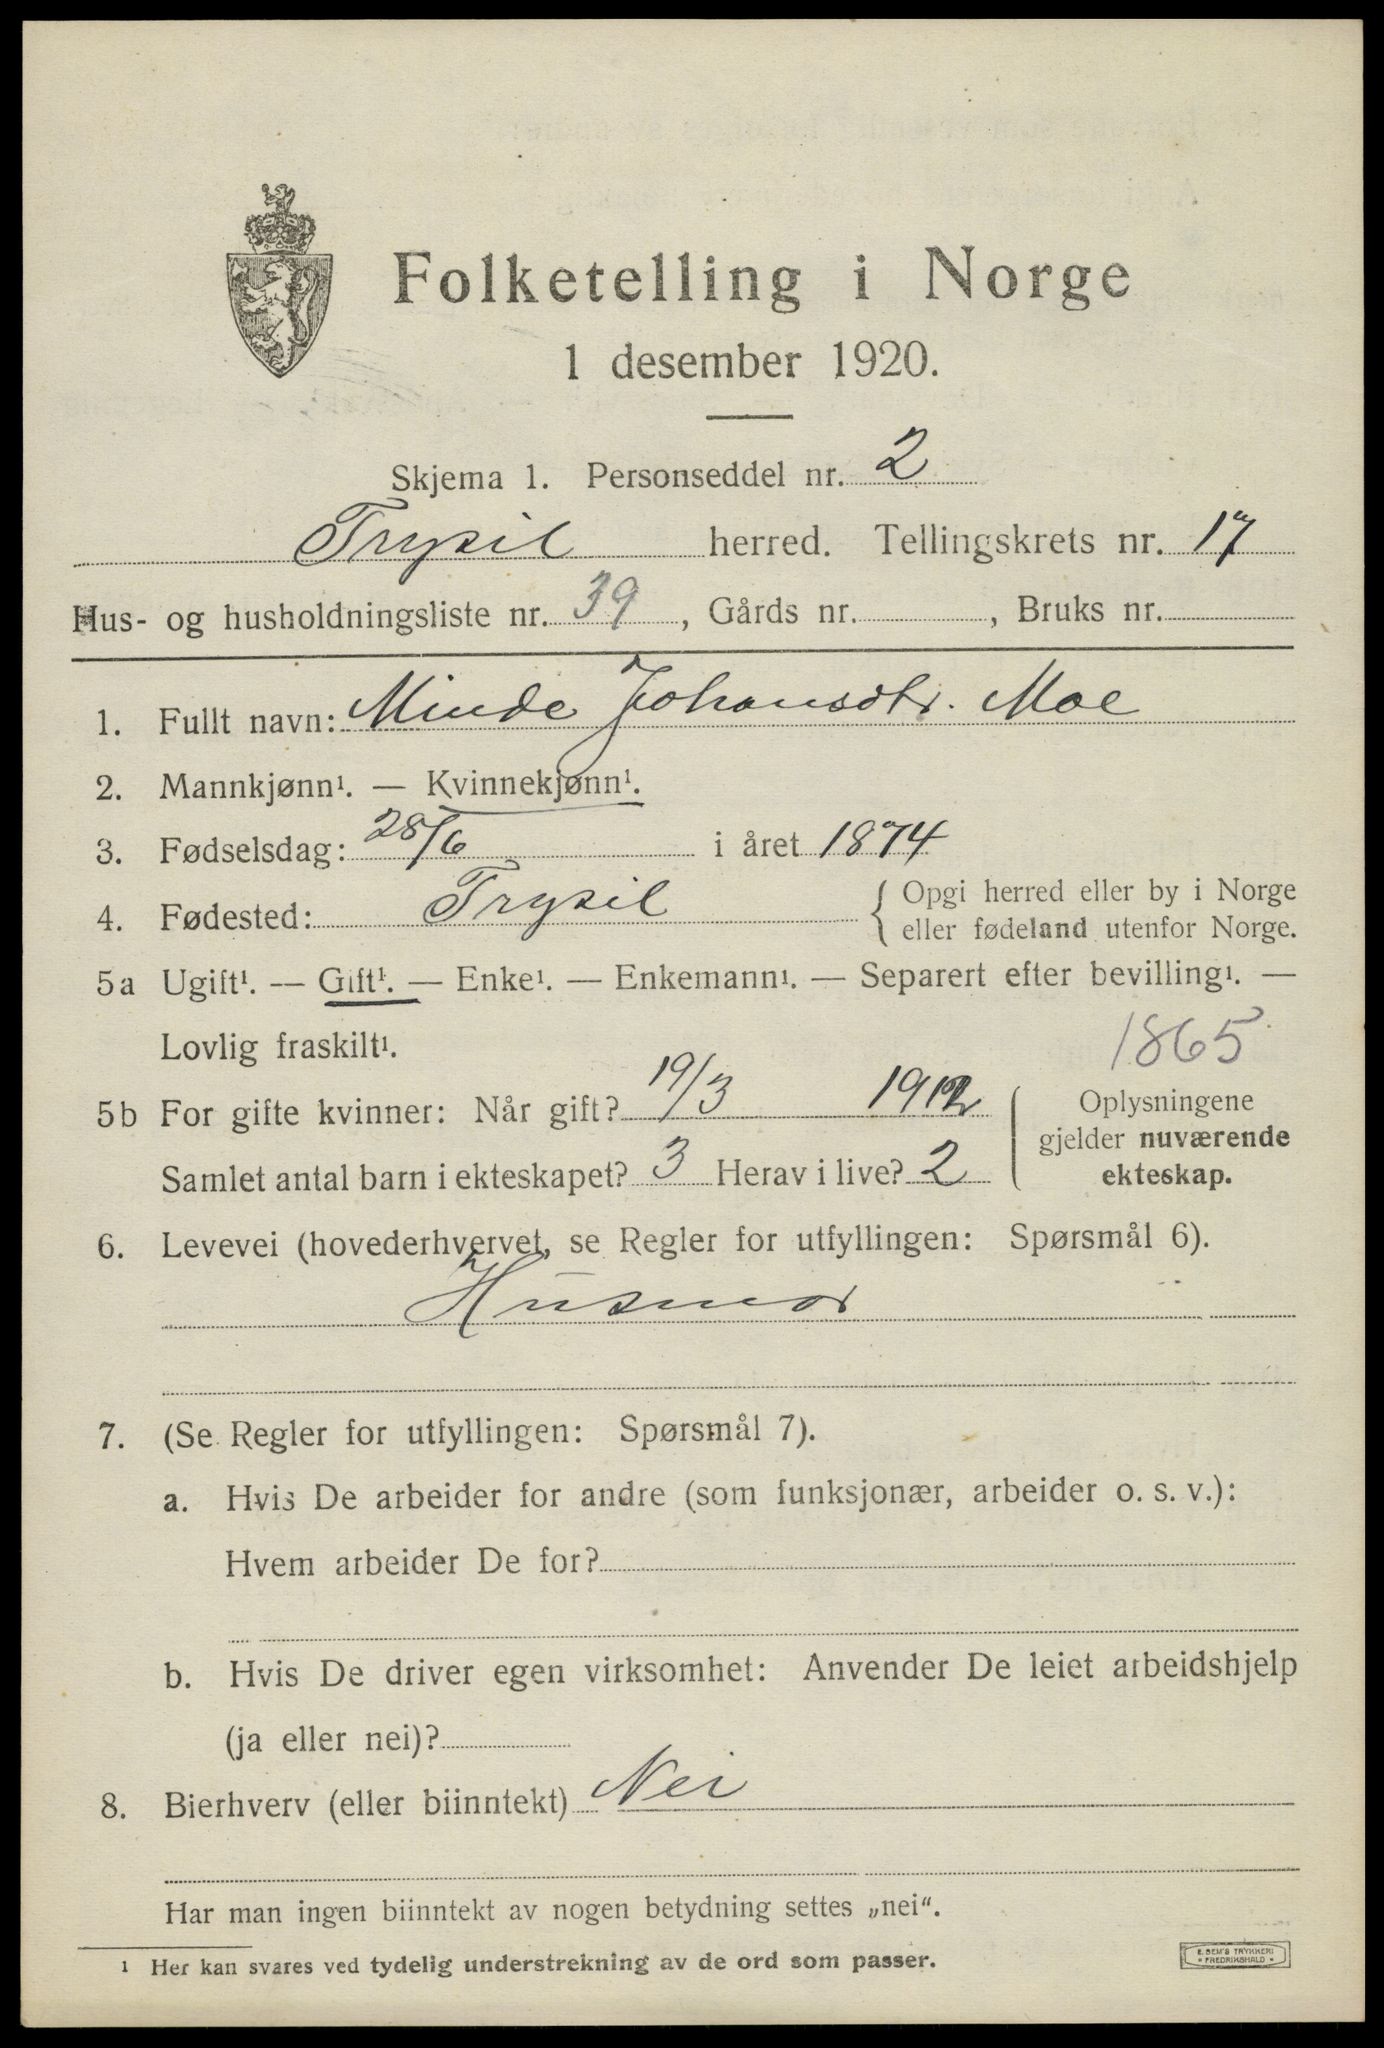 Folketelling i Norge
1 desember 1920.
Skjema 1. Personseddel nr. 2
Trysil herred. Tellingskrets nr. 17
Hus- og husholdningsliste nr. 39, Gårds nr. , Bruks nr.
1. Fullt navn: Minde Johansdtr. Moe
2. Mannkjønn¹. — Kvinnekjønn¹.
3. Fødselsdag: 28/6 i året 1874
4. Fødested: Trysil { Opgi herred eller by i Norge
eller fødeland utenfor Norge.
5a Ugift¹. — Gift¹. — Enke¹. — Enkemann¹. — Separert efter bevilling¹. —
Lovlig fraskilt¹.
1865
5b For gifte kvinner: Når gift? 19/3 1912
Samlet antal barn i ekteskapet? 3 Herav i live? 2
Oplysningene
gjelder nuværende
ekteskap.
6. Levevei (hovederhvervet, se Regler for utfyllingen: Spørsmål 6).
Husmor
7. (Se Regler for utfyllingen: Spørsmål 7).
a. Hvis De arbeider for andre (som funksjonær, arbeider o. s. v.):
Hvem arbeider De for?
b. Hvis De driver egen virksomhet: Anvender De leiet arbeidshjelp
(ja eller nei)?
8. Bierhverv (eller biinntekt) Nei
Har man ingen biinntekt av nogen betydning settes „nei“.
¹ Her kan svares ved tydelig understrekning av de ord som passer.
E. SEM'S TRYKKERI
• FREDRIKSHALD •